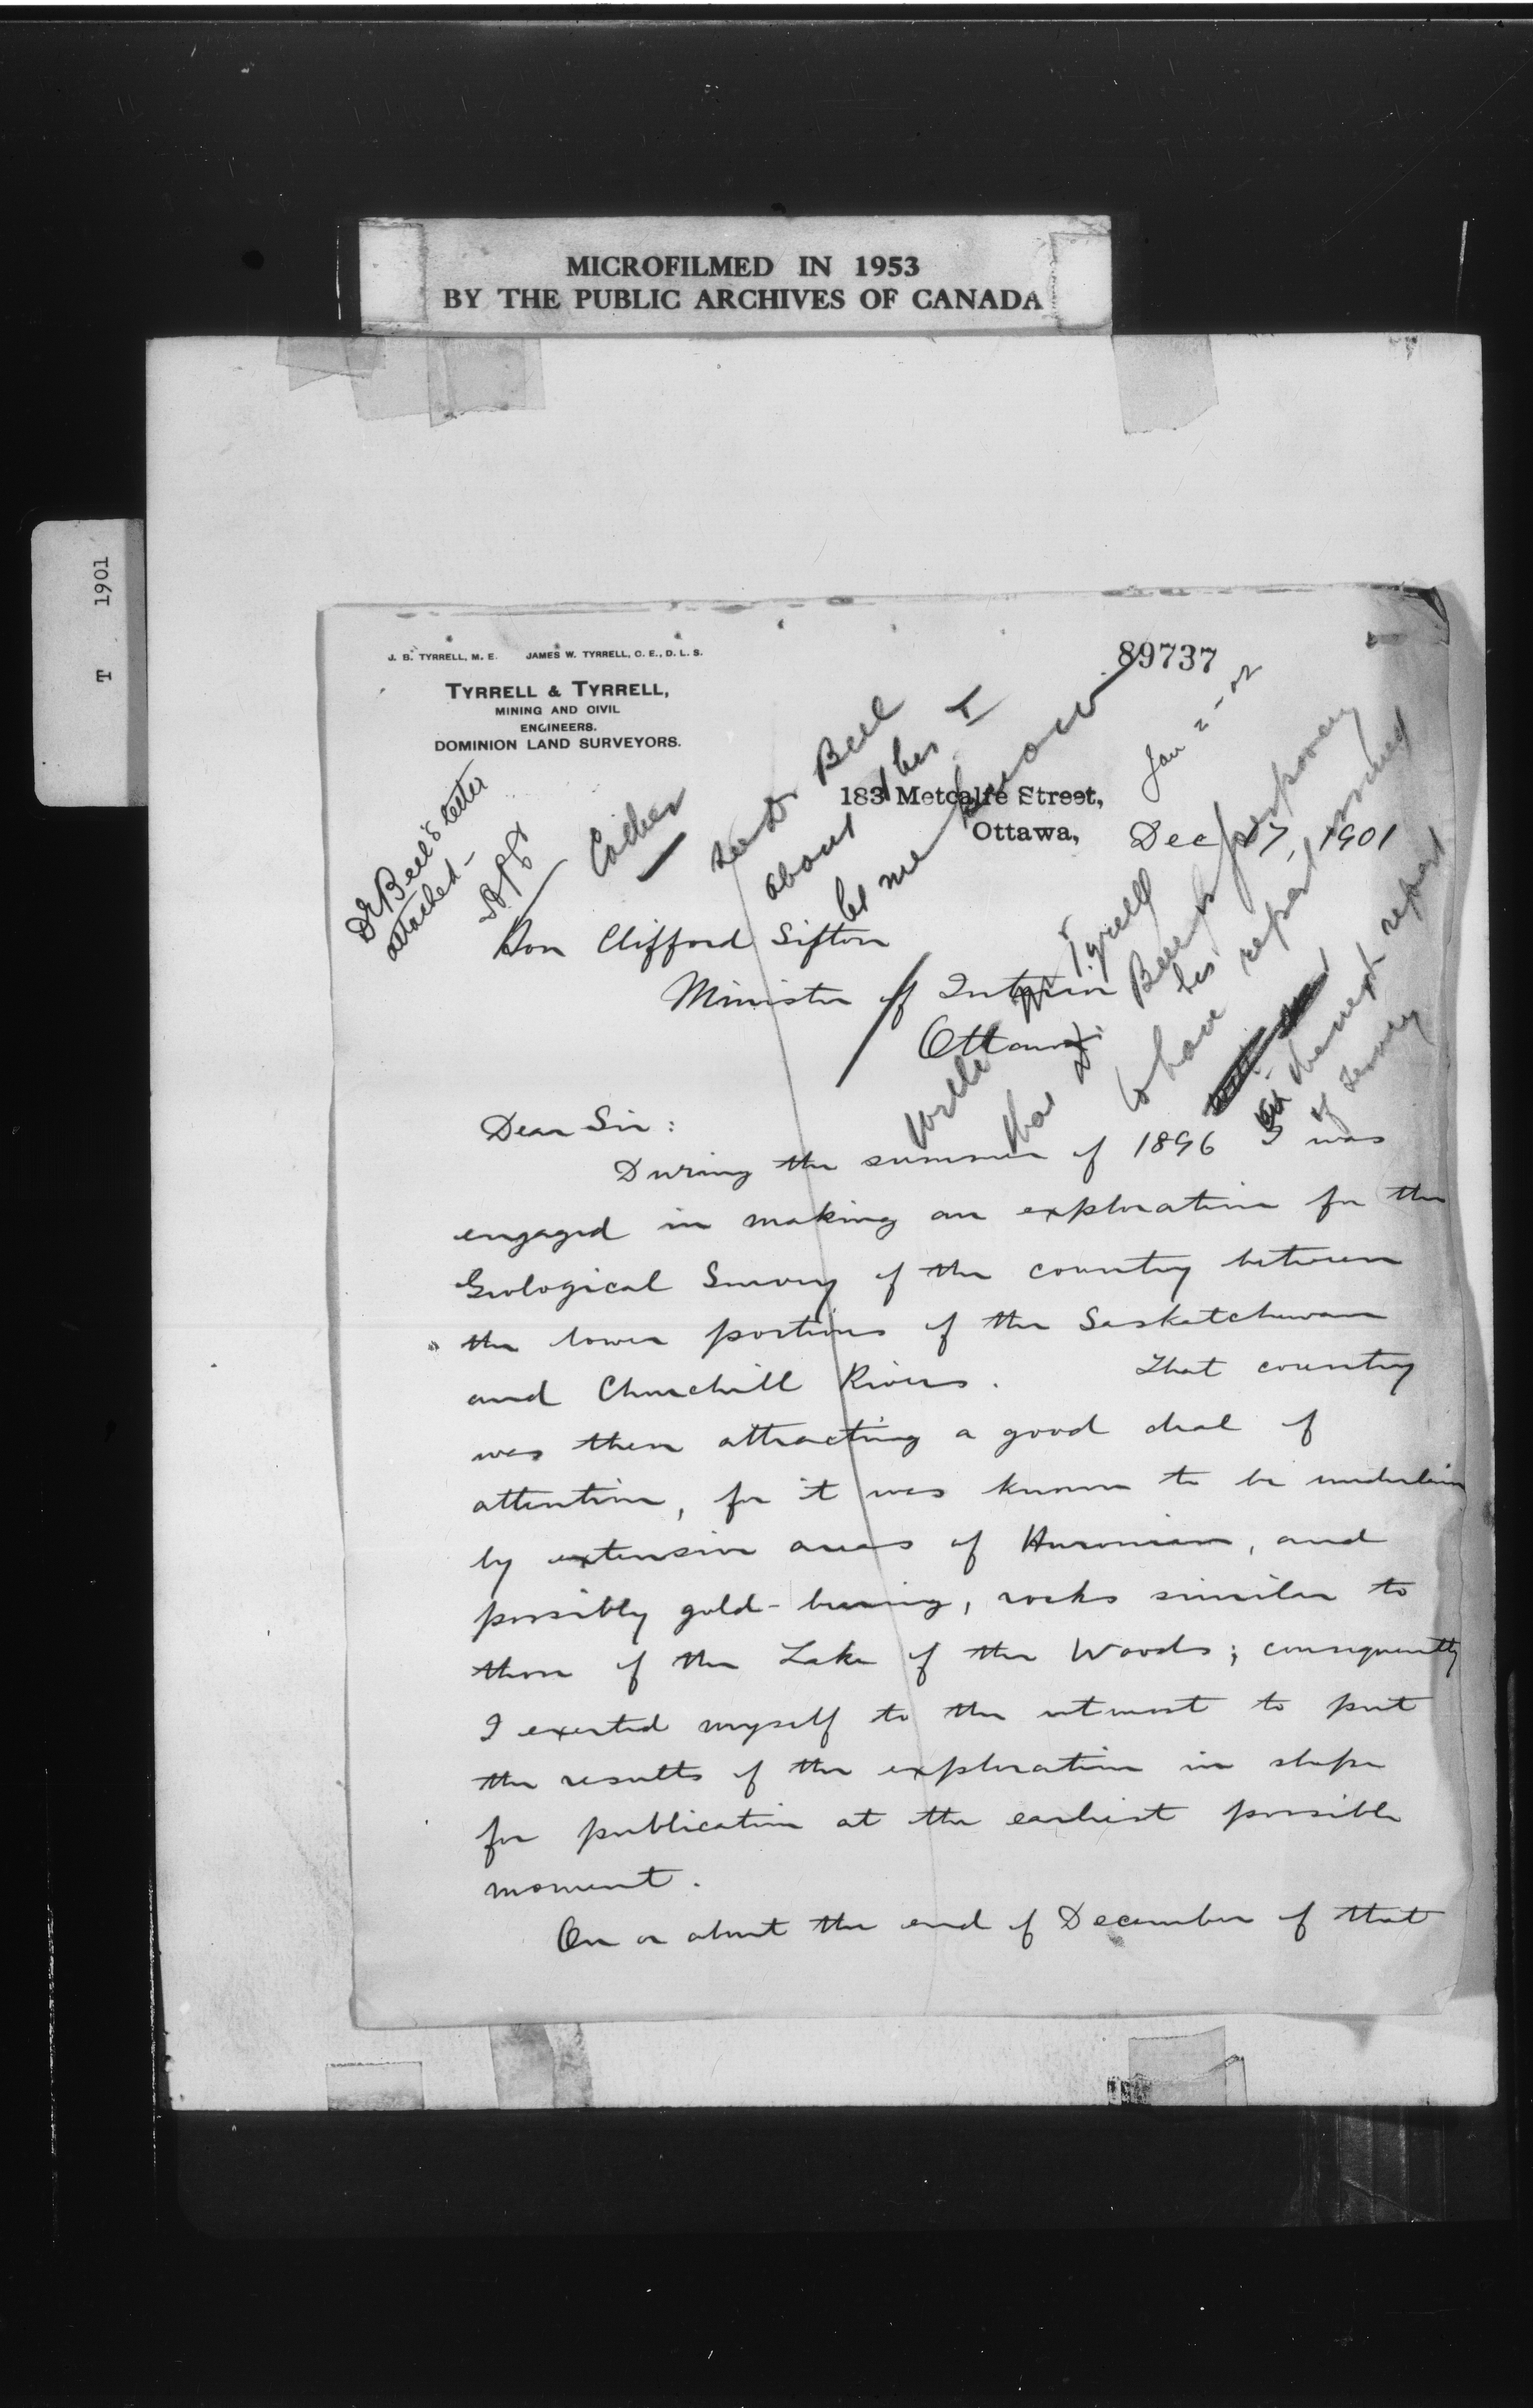 MICROFILMED IN 1953
BY THE PUBLIC ARCHIVES OF CANADA
T 1901
89737
J. B. TYRRELL, M. E. JAMES W. TYRRELL, C. E., D. L. S.
TYRRELL & TYRRELL,
MINING AND CIVIL
ENGINEERS.
DOMINION LAND SURVEYORS.
183 Metcalfe Street,
Ottawa, Dec 27, 1901
Jan 2-02
Dr Bell's letter
attached -
see Dr Bell
about this &
let me know
Write Mr Tyrrell
that Dr Bell is
to have his report
report
Hon Clifford Sifton
Minister of Interior
Ottawa
Dear Sir:
During the summer of 1896 I was
engaged in making an exploration for the
Geological Survey of the country between
the lower portions of the Saskatchewan
and Churchill Rivers. That country
was then attracting a good deal of
attention, for it was known to be underlain
by extensive areas of Huronian, and
possibly gold-bearing, rocks similar to
those of the Lake of the Woods; consequently
I exerted myself to the utmost to put
the results of the exploration in shape
for publication at the earliest possible
moment.
On or about the end of December of that